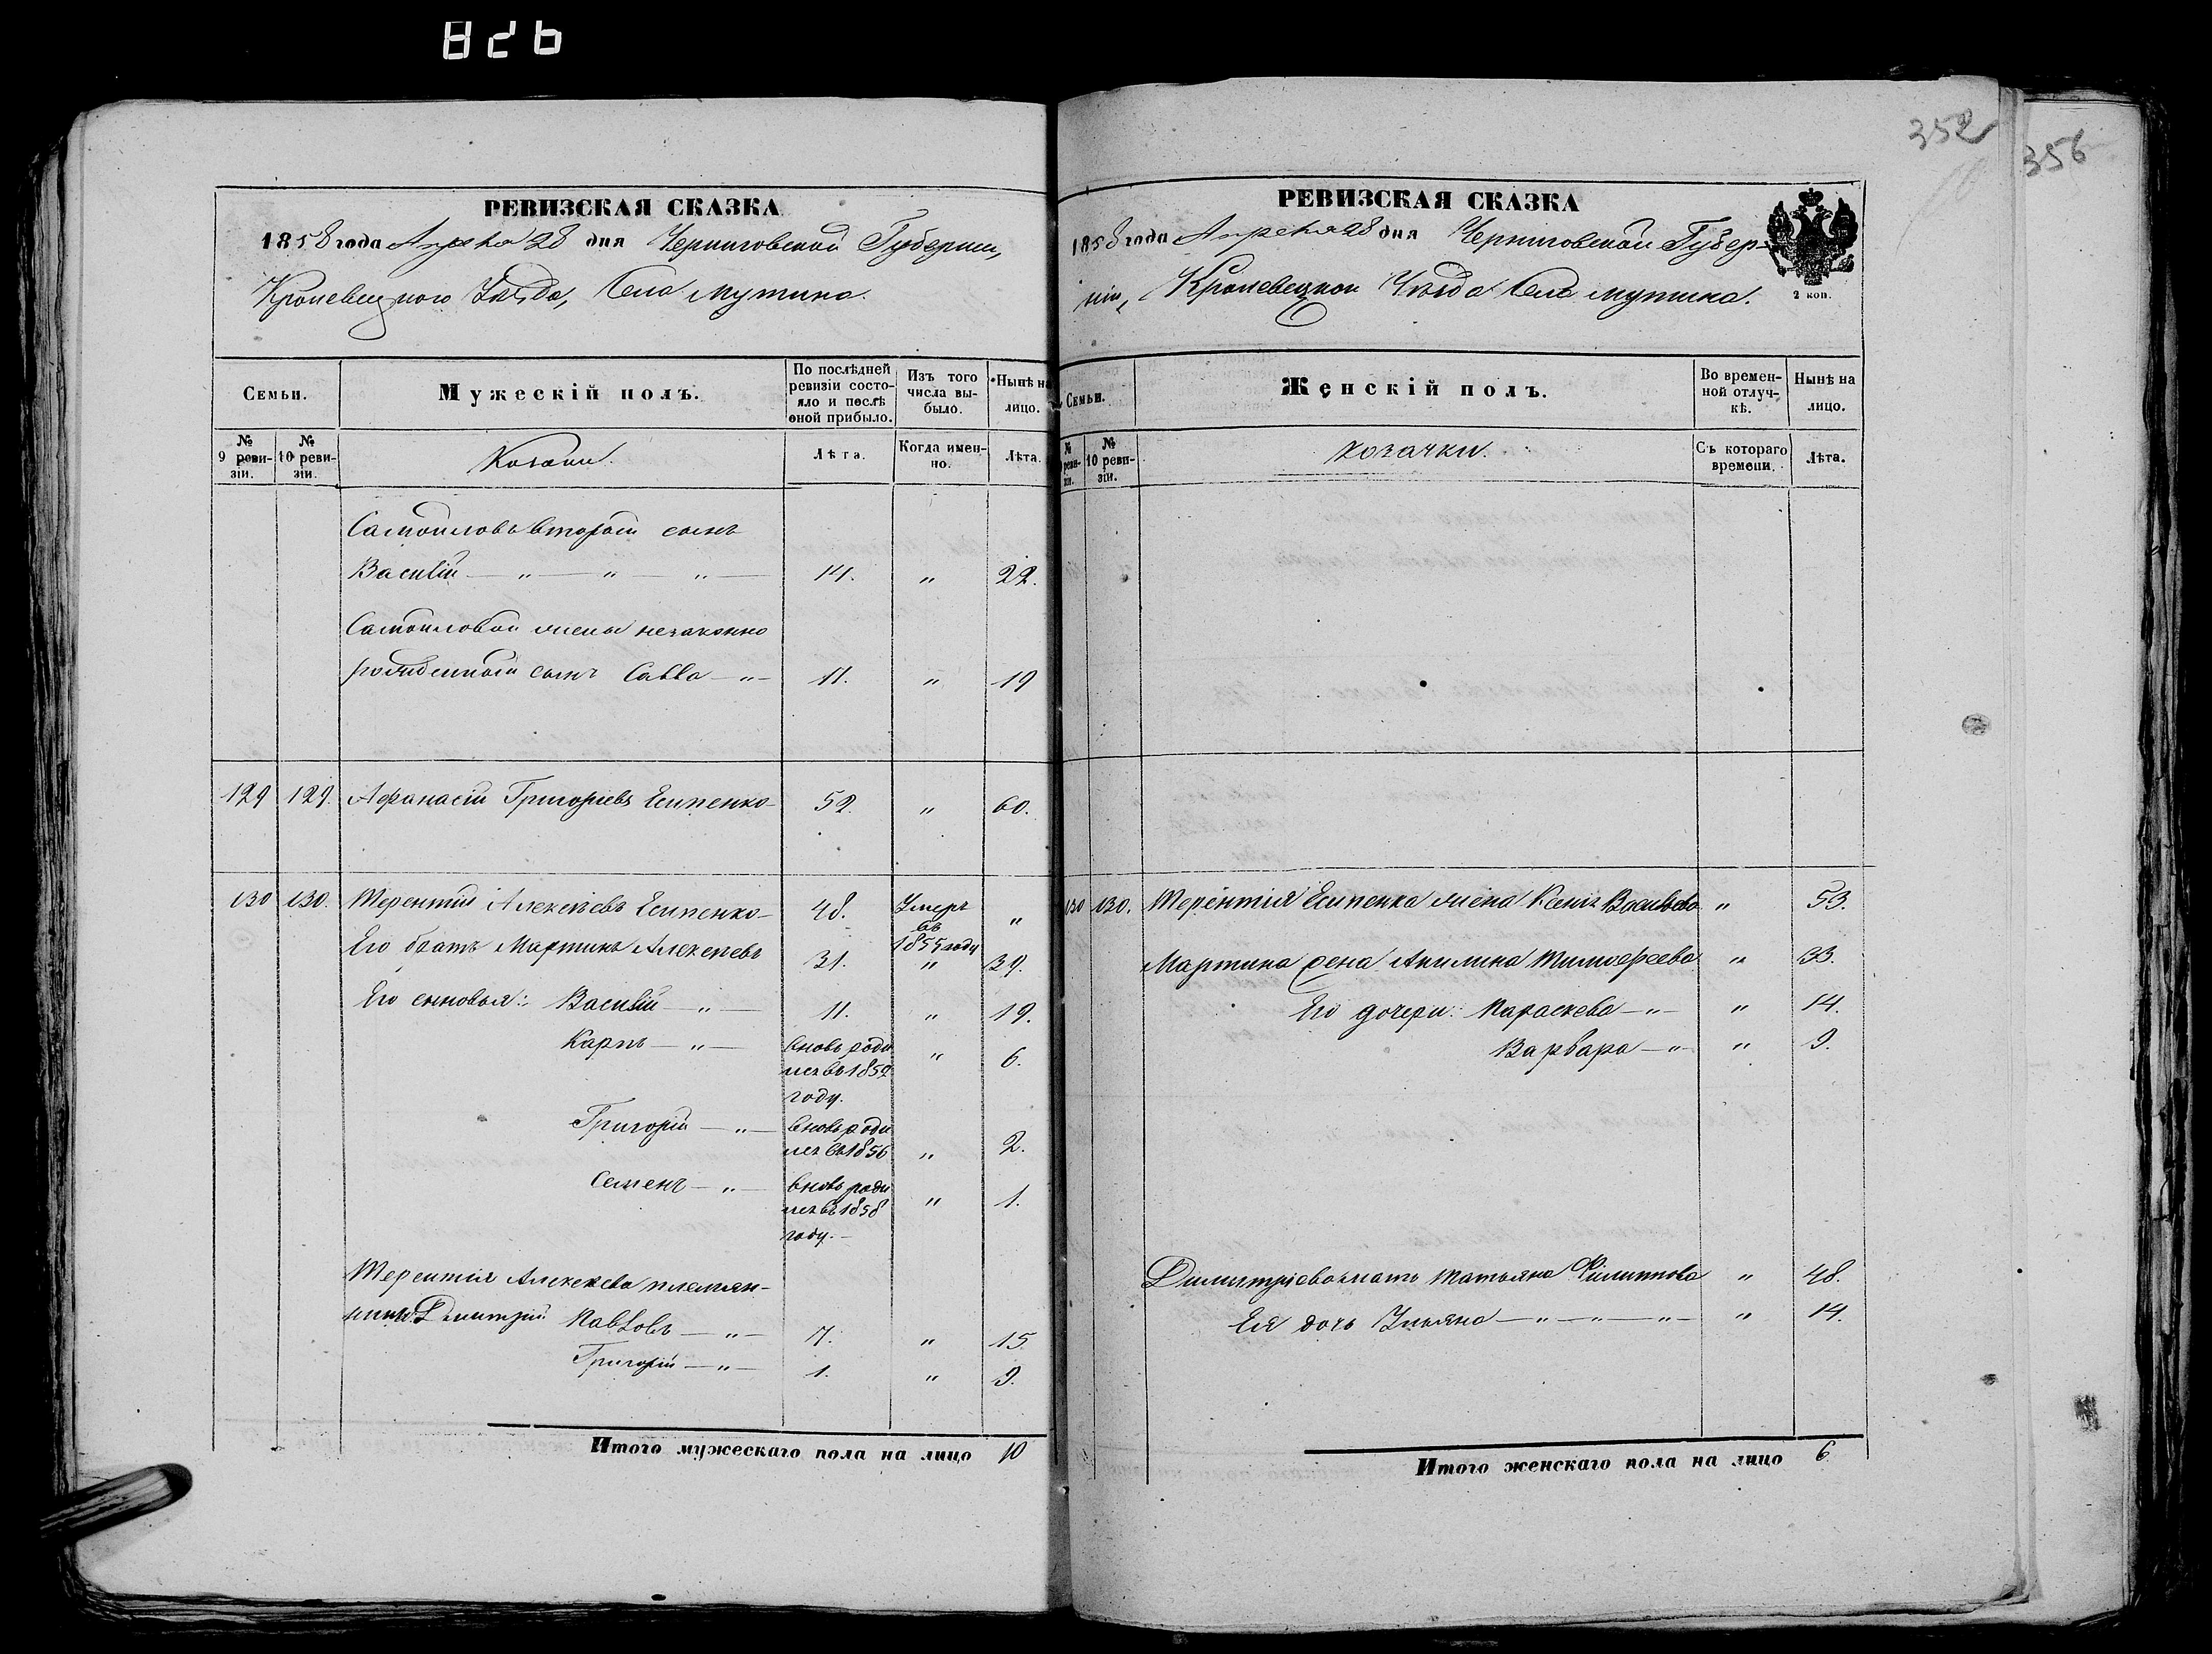 826
352
356
РЕВИЗСКАЯ СКАЗКА
1858 года Апреля 28 дня Черниговской Губернии,
Кролевецкого Уезда, Села Мутина.
Семьи.
Мужескій полъ.
По послѣдней ревизіи состояло и послѣ оной прибыло.
Изъ того числа выбыло.
Нынѣ на лицо.
№ 9 ревизіи.
№ 10 ревизіи.
Козаки.
Лѣта.
Когда именно.
Лѣта.
Самойловъ вторый сынъ
Василій — " — " — " — 14. " 22.
Самойловой жены незаконно
рожденный сынъ Савва — " — 11. " 19
129 129. Афанасій Григорьевъ Есипенко 52. " 60.
130 130. Терентій Алексѣевъ Есипенко 48. Умеръ въ 1855 году "
Его братъ Мартинъ Алексѣевъ 31. " 39.
Его сыновья: Василій — " — 11. " 19.
Карпъ — " — вновь родился въ 1852 году. " 6.
Григорій — " — вновь родился въ 1856 " 2.
Семенъ — " — вновь родился въ 1858 году. " 1.
Терентія Алексѣева племян-
ники Дмитрій Павловъ — " — 7. " 15.
Григорій — " — 1. " 9.
Итого мужескаго пола на лицо 10
РЕВИЗСКАЯ СКАЗКА
1858 года Апреля 28 дня Черниговской Губер-
ніи, Кролевецкой Уѣзда Села Мутина.
2 коп.
Семьи.
Женскій полъ.
Во временной отлучкѣ.
Нынѣ на лицо.
№ ревизіи.
№ 10 ревизіи.
Козачки.
Съ котораго времени.
Лѣта.
130 130. Терентія Есипенка жена Ксенія Васильева " 53.
Мартина жена Акилина Тимофеева " 33.
Его дочери: Параскева — " — " 14.
Варвара — " — " 9.
Димитріева мать Татьяна Филиппова " 48.
Ея дочь Ульяна — " — " — " — " 14.
Итого женскаго пола на лицо 6